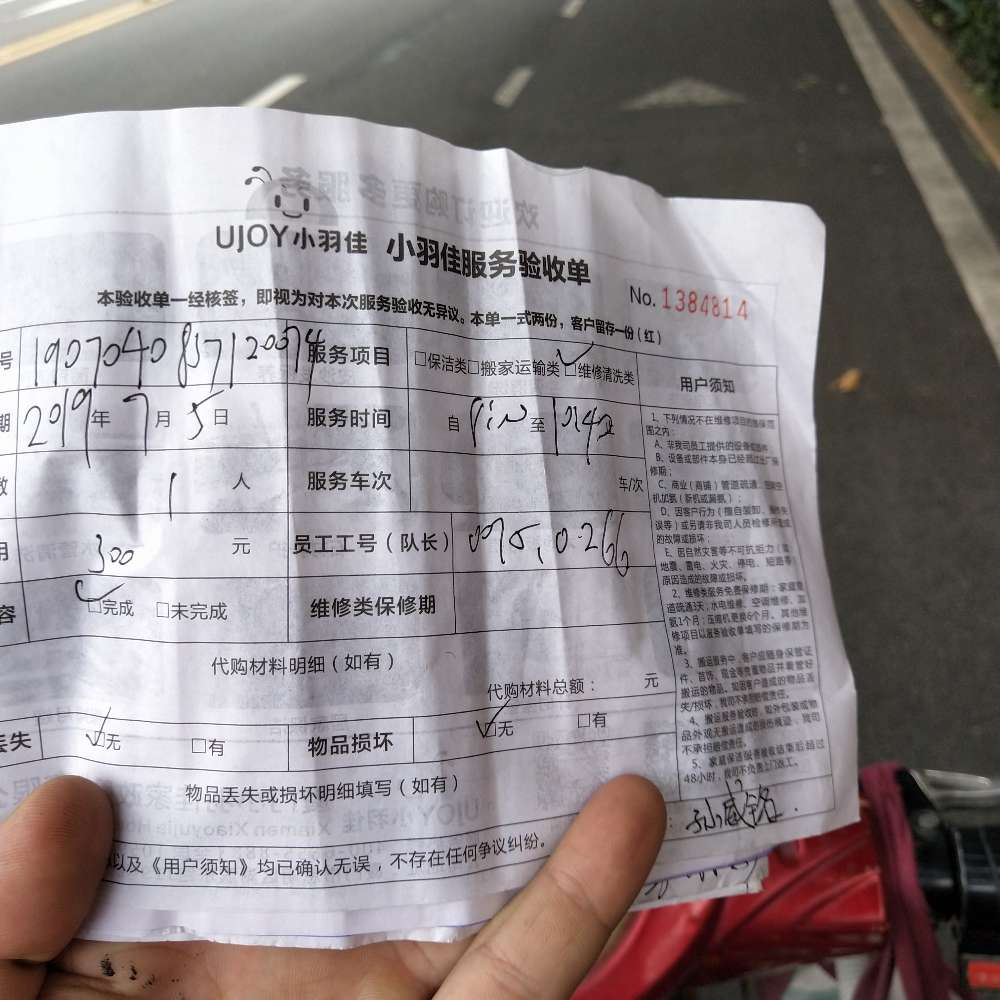 欢迎订购更多服务
UJOY小羽佳 小羽佳服务验收单
No. 1384814
本验收单一经核签，即视为对本次服务验收无异议。本单一式两份，客户留存一份（红）
号 1907040857120074 服务项目 □保洁类□搬家运输类□维修清洗类 用户须知
期 2019年7月5日 服务时间 自 至
数 1 人 服务车次 车/次
用 300 元 员工工号（队长）
容 □完成 □未完成 维修类保修期
代购材料明细（如有）
代购材料总额： 元
丢失 □无 □有 物品损坏 □无 □有
物品丢失或损坏明细填写（如有）
以及《用户须知》均已确认无误，不存在任何争议纠纷。
孙威铭
1、下列情况不在维修项目的维保范
围之内：
A、非我司员工提供的设备或部件
B、设备或部件本身已经超过出厂保
修期；
C、商业（商铺）管道疏通、
机加氨（新机或漏氨）；
D、因客户行为（擅自装卸、
误等）或另请非我司人员检修所造成
的故障或损坏；
E、因自然灾害等不可抗拒力（
地震、雷电、火灾、停电、短路等）
原因造成的故障或损坏。
2、维修类服务免费保修期：家庭管
道疏通3天；水电维修、空调维修、加
氨1个月；压缩机更换6个月。其他维
修项目以服务验收单填写的保修期为
准。
3、搬运服务中，客户应随身保管证
件、首饰、现金等贵重物品并看管好
搬运的物品。如因客户造成的物品丢
失/损坏，我司不承担赔偿责任。
4、搬运服务验收时，如外包装或物
品外观无搬运造成的损伤痕迹，我司
不承担赔偿责任。
5、家庭保洁服务验收结束后超过
48小时，我司不负责上门返工。